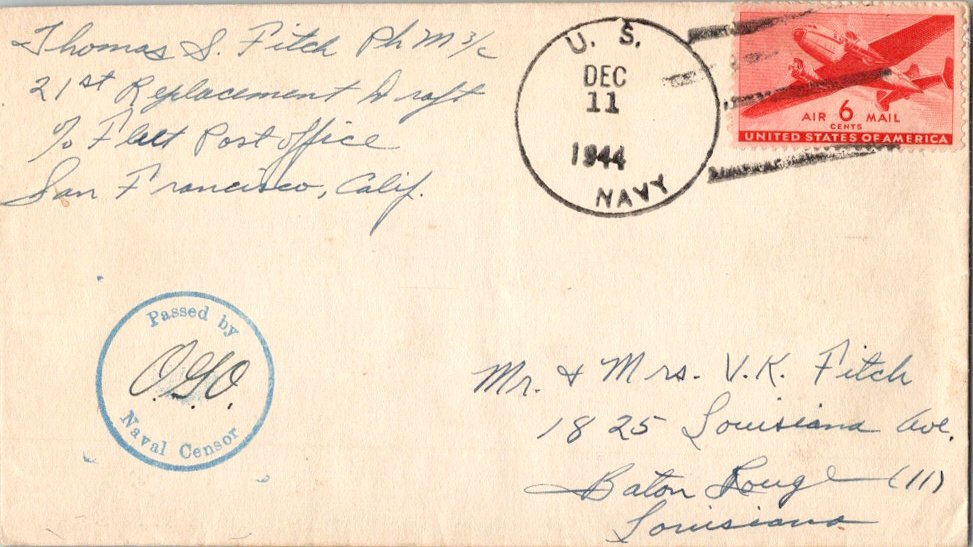 Thomas S. Fitch PhM 3/c
21st Replacement Draft
℅ Fleet Post Office
San Francisco, Calif.
U. S.
DEC
11
1944
NAVY
AIR 6 MAIL
CENTS
UNITED STATES OF AMERICA
Passed by
O.G.O.
Naval Censor
Mr. & Mrs. V.K. Fitch
1825 Louisiana Ave.
Baton Rouge (11)
Louisiana